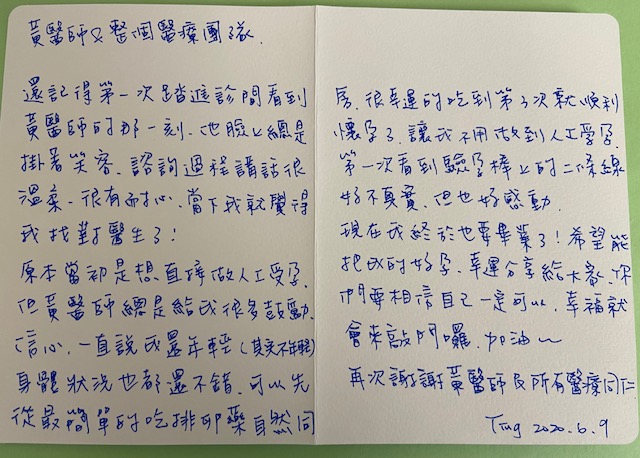 黃醫師&整個醫療團隊.
還記得第一次踏進診間看到
黃醫師的那一刻. 他臉上總是
掛著笑容. 諮詢過程講話很
溫柔. 很有耐心. 當下我就覺得
我找對醫生了!
原本當初是想直接做人工受孕.
但黃醫師總是給我很多鼓勵.
信心. 一直說我還年輕(其實不年輕)
身體狀況也都還不錯. 可以先
從最簡單的吃排卵藥自然同
房. 很幸運的吃到第3次就順利
懷孕了. 讓我不用做到人工受孕.
第一次看到驗孕棒上的二條線
好不真實. 但也好感動.
現在我終於也要畢業了! 希望能
把我的好孕. 幸運分享給大家. 你
們要相信自己一定可以. 幸福就
會來敲門囉. 加油~
再次謝謝黃醫師及所有醫療同仁
Ting 2020.6.9